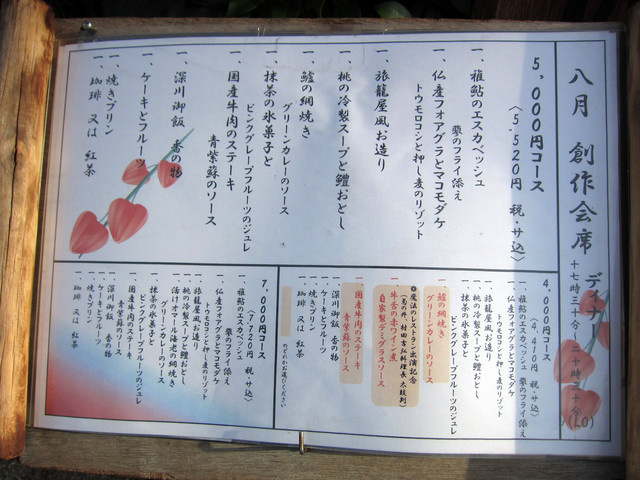 八月 創作会席 ディナー
十七時三十分～二十時三十分(L.O)
5,000円コース
(5,520円 税・サ込)
一、稚鮎のエスカベッシュ
蓼のフライ添え
一、仏産フォアグラとマコモダケ
トウモロコシと押し麦のリゾット
一、旅籠屋風お造り
一、桃の冷製スープと鱧おとし
一、鱸の網焼き
グリーンカレーのソース
一、抹茶の氷菓子と
ピンクグレープフルーツのジュレ
一、国産牛肉のステーキ
青紫蘇のソース
一、深川御飯 香の物
一、ケーキとフルーツ
一、焼きプリン
一、珈琲 又は 紅茶
4,000円コース
(4,410円 税・サ込)
一、稚鮎のエスカベッシュ 蓼のフライ添え
一、仏産フォアグラとマコモダケ
トウモロコシと押し麦のリゾット
一、旅籠屋風お造り
一、桃の冷製スープと鱧おとし
一、抹茶の氷菓子と
ピンクグレープフルーツのジュレ
一、鱸の網焼き
グリーンカレーのソース
魔法のレストラン出演記念
一、牛舌の赤ワイン煮
自家製デミグラスソース
一、国産牛肉のステーキ
青紫蘇のソース
一、深川御飯 香の物
一、ケーキとフルーツ
一、焼きプリン
一、珈琲 又は 紅茶
のどれかお選びください
7,000円コース
(7,720円 税・サ込)
一、稚鮎のエスカベッシュ
蓼のフライ添え
一、仏産フォアグラとマコモダケ
トウモロコシと押し麦のリゾット
一、旅籠屋風お造り
一、桃の冷製スープと鱧おとし
一、活けオマール海老の網焼き
グリーンカレーのソース
一、抹茶の氷菓子と
ピンクグレープフルーツのジュレ
一、国産牛肉のステーキ
青紫蘇のソース
一、深川御飯 香の物
一、ケーキとフルーツ
一、焼きプリン
一、珈琲 又は 紅茶